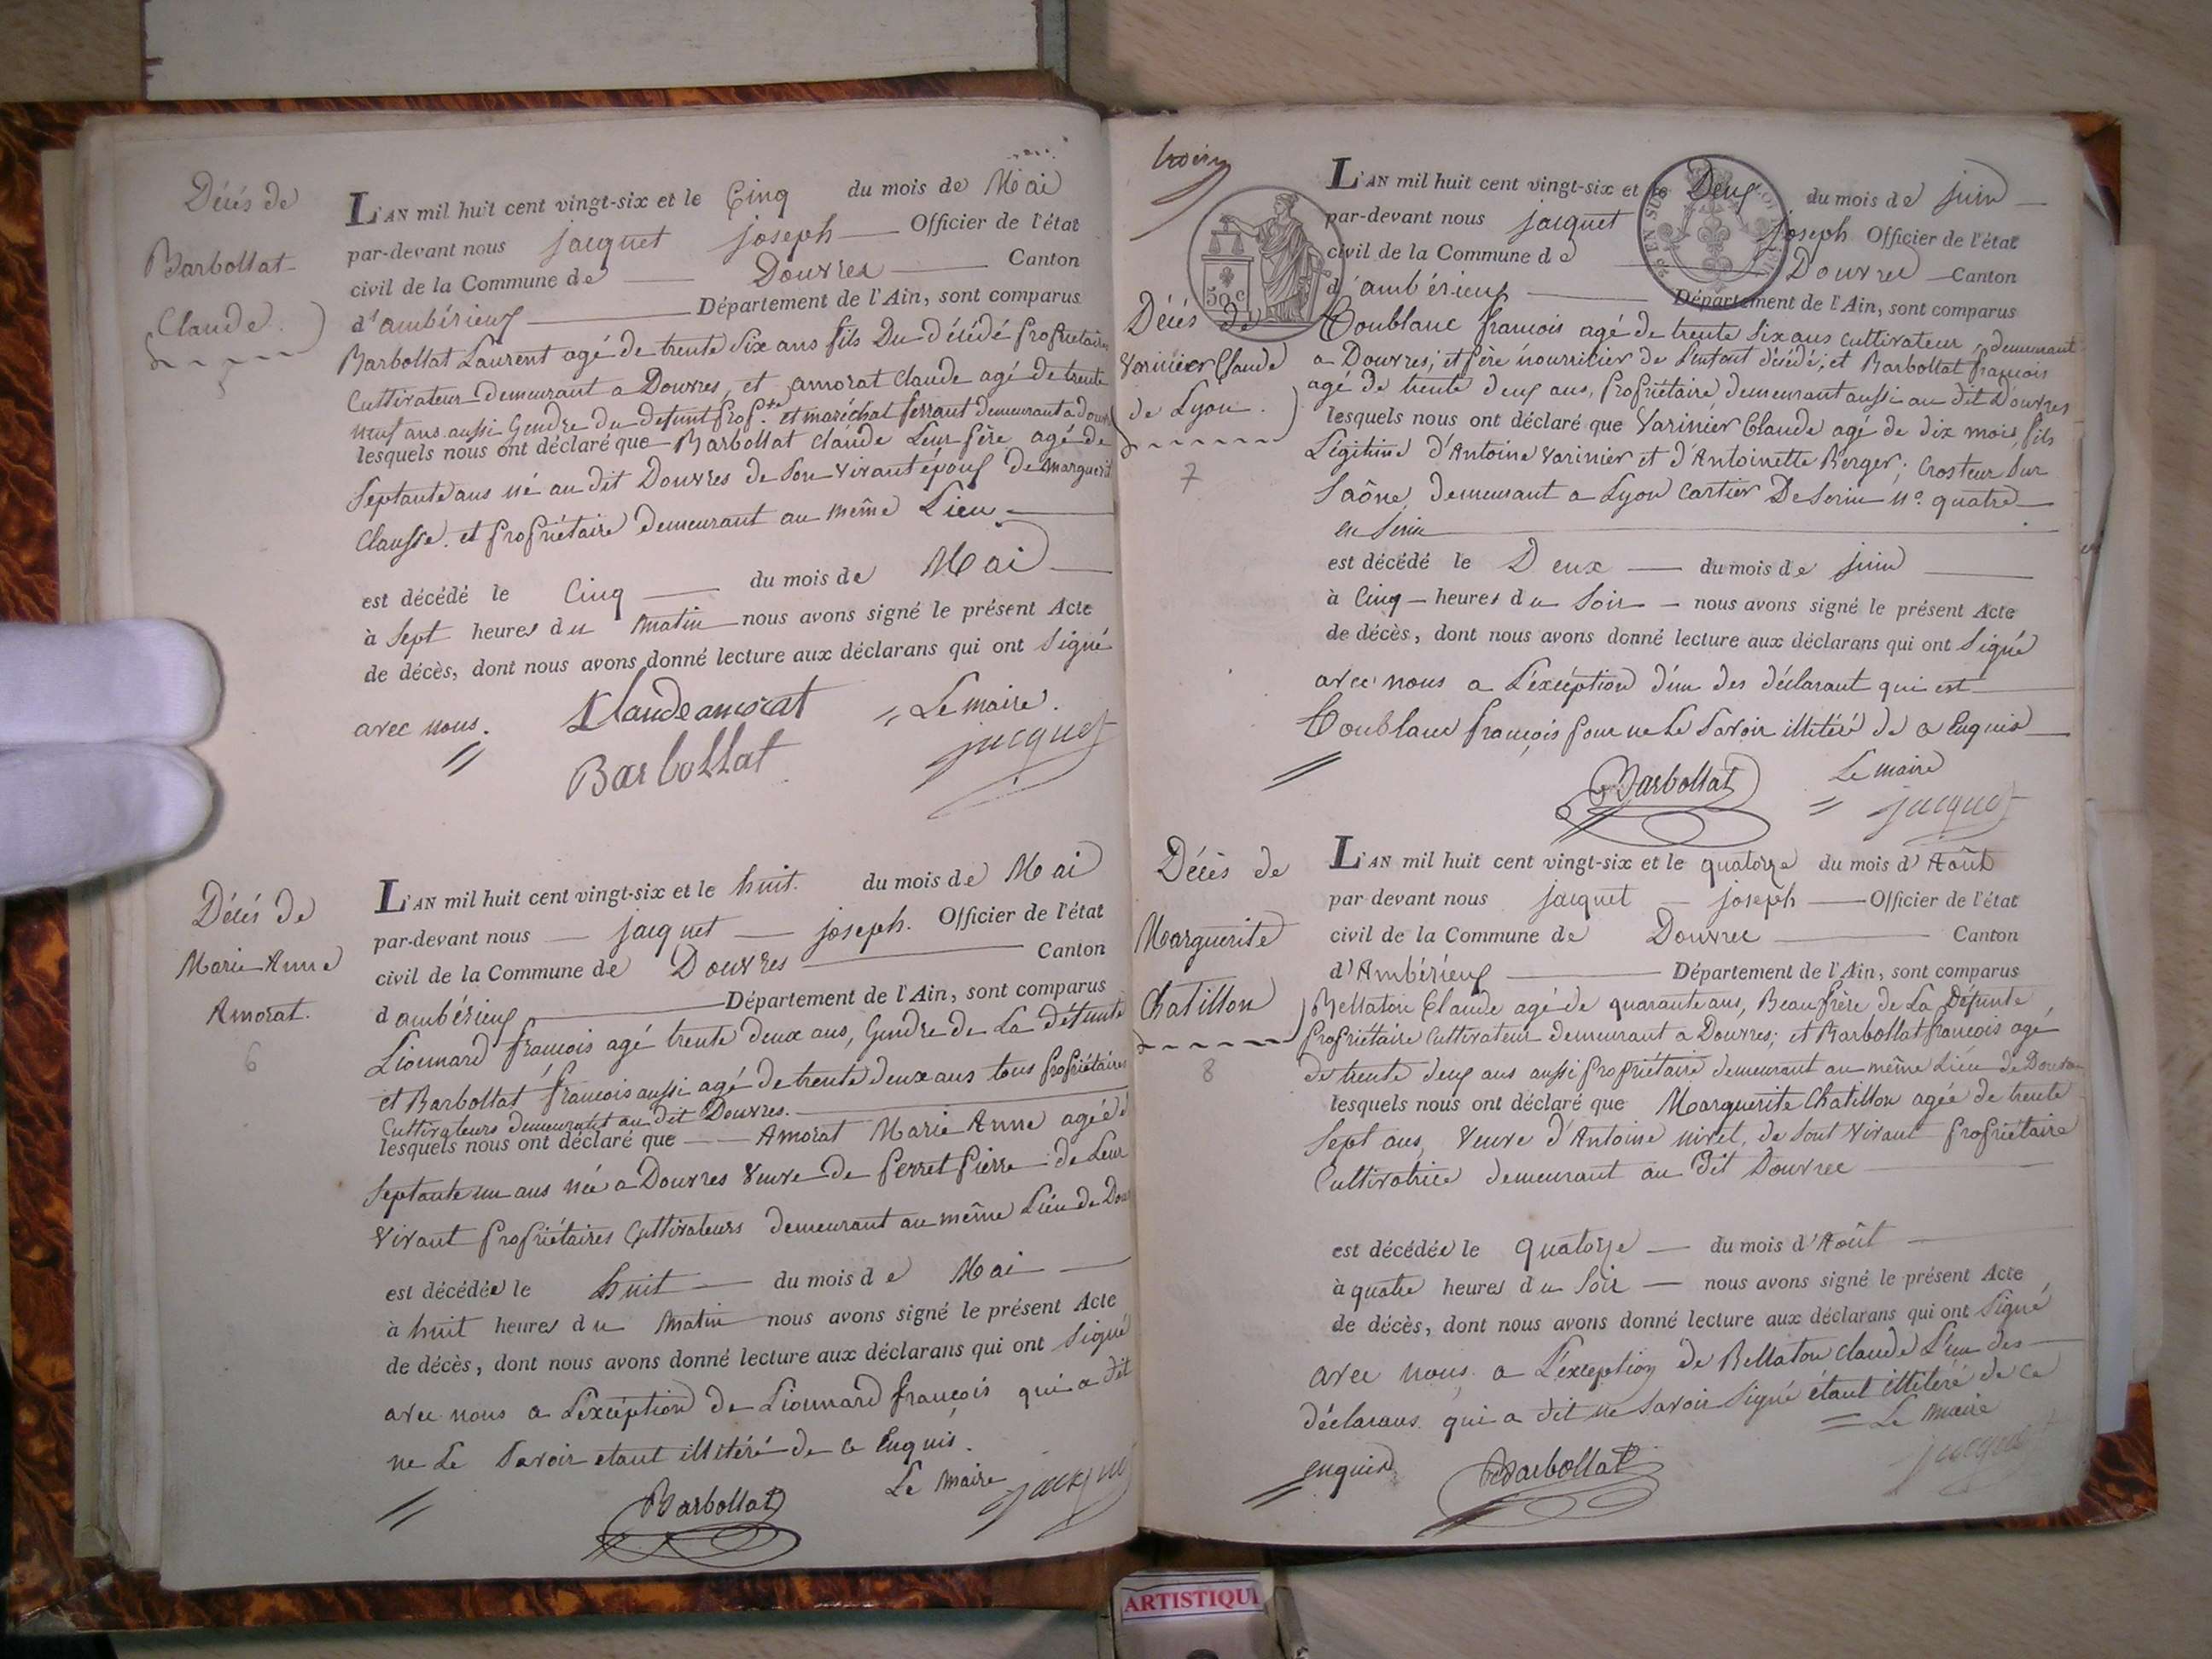 Décés de
Barbollat
Claude.
5
L'AN mil huit cent vingt-six et le Cinq du mois de Mai
par-devant nous jacquet joseph Officier de l'état
civil de la Commune de Douvres Canton
d'ambérieux Département de l'Ain, sont comparus
Barbollat Laurent agé de trente Six ans fils Du décédé proprietaire
Cultivateur demeurant a Douvres, et amorat Claude agé de trente
neuf ans aussi Gendre du defunt prop.re et maréchal ferrant demeurant a douvres
lesquels nous ont déclaré que Barbollat claude Leur père agé de
Septante ans né au dit Douvres de Son vivant époux de Marguerit
Clausse. et propriétaire demeurant au même Lieu
est décédé le Cinq du mois de Mai
à Sept heures du matin nous avons signé le présent Acte
de décès, dont nous avons donné lecture aux déclarans qui ont Signé
avec nous. Claude amorat Le maire.
Barbollat jacquet
Décés de
Marie Anne
Amorat.
6
L'AN mil huit cent vingt-six et le huit. du mois de Mai
par-devant nous jacquet joseph. Officier de l'état
civil de la Commune de Douvres Canton
d ambérieux Département de l'Ain, sont comparus
Lionnard françois agé trente deux ans, Gendre de La défunte
et Barbollat françois aussi agé de trente deux ans tous propriétaires
Cultivateurs demeurant au dit Douvres.
lesquels nous ont déclaré que Amorat Marie Anne agée de
Septante un ans née a Douvres Veuve de perret pierre de Leur
Vivant propriétaires Cultivateurs demeurant au même Lieu de Dou
est décédée le huit du mois de Mai
à huit heures du matin nous avons signé le présent Acte
de décès, dont nous avons donné lecture aux déclarans qui ont Signé
avec nous a L'exception de Lionnard françois qui a dit
ne Le Savoir etant illitéré de ce Enquis.
Barbollat Le maire jacquet
50 c
Décés de
Varinier Claude
de Lyon.
7
L'AN mil huit cent vingt-six et le Deux du mois de juin
par-devant nous jacquet joseph Officier de l'état
civil de la Commune de Douvres Canton
d'ambérieux Département de l'Ain, sont comparus
Coublanc francois agé de trente Six ans Cultivateur, demeurant
a Douvres; et père nourricier de L'enfant décédé; et Barbollat francois
agé de trente deux ans, propriétaire demeurant aussi au dit Douvres
lesquels nous ont déclaré que Varinier Claude agé de dix mois, fils
Légitime d'Antoine Varinier et d'Antoinette Berger; Crosteur Sur
Saône, demeurant a Lyon Cartier De Serin N.o quatre
en Serin
est décédé le Deux du mois de juin
à Cinq heures du Soir nous avons signé le présent Acte
de décès, dont nous avons donné lecture aux déclarans qui ont Signé
avec nous a L'exception d'un des déclarant qui est
Coublanc françois pour ne Le Savoir illitéré de ce Enquis
Barbollat Le maire
jacquet
Décès de
Marguerite
Chatillon
8
L'AN mil huit cent vingt-six et le quatorze du mois d'Août
par-devant nous jacquet joseph Officier de l'état
civil de la Commune de Douvres Canton
d'Ambérieux Département de l'Ain, sont comparus
Bellaton Claude agé de quarante ans, Beau frère de La Défunte
propriétaire Cultivateur demeurant a Douvres; et Barbollat francois agé
de trente deux ans aussi propriétaire demeurant au même Lieu de Douvres
lesquels nous ont déclaré que Marguerite Chatillon agée de trente
Sept ans, Veuve d'Antoine nivet, de Sont Vivant propriétaire
Cultivatrice demeurant au dit Douvres
est décédée le quatorze du mois d'Août
à quatre heures du Soir nous avons signé le présent Acte
de décès, dont nous avons donné lecture aux déclarans qui ont Signé
avec nous a L'exception de Bellaton Claude L'un des
déclarans qui a dit ne Savoir Signé étant illitéré de ce
enquis. Barbollat Le maire
jacquet
ARTISTIQU